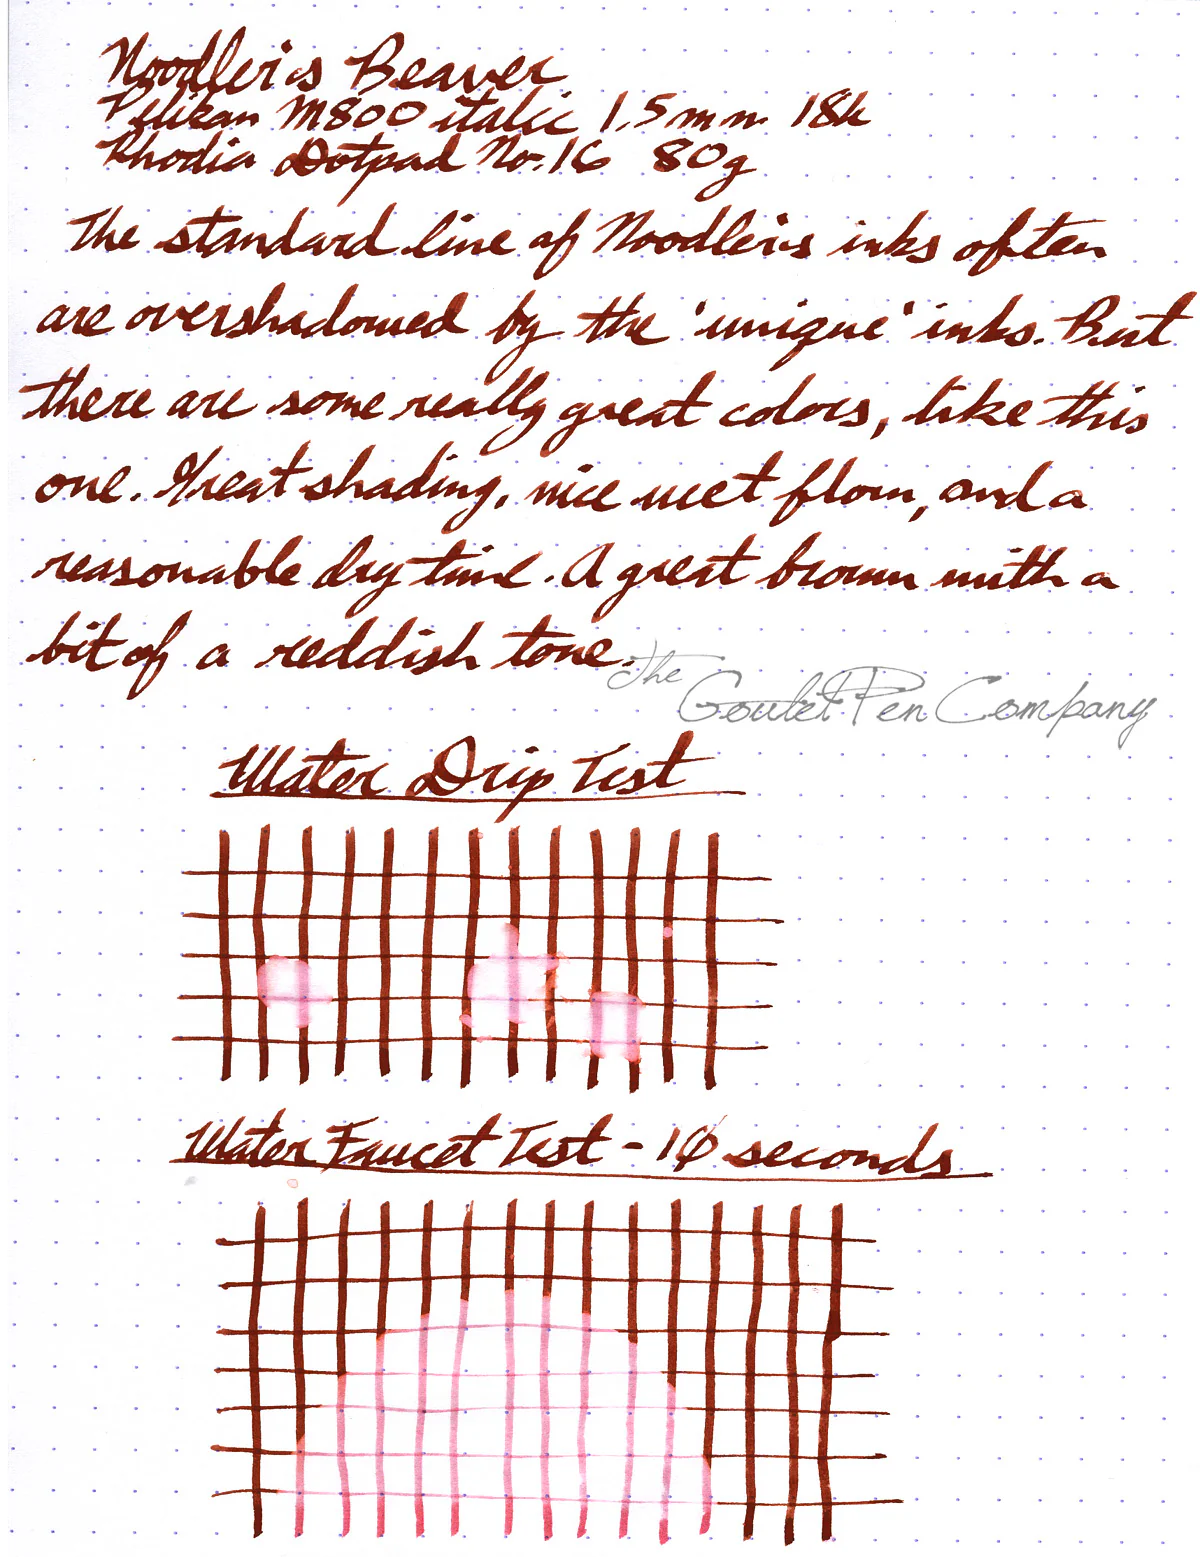 Noodler's Beaver
Pelikan M800 italic 1.5mm 18k
Rhodia Dotpad No. 16 80g
The standard line of Noodler's inks often
are overshadowed by the 'unique' inks. But
there are some really great colors, like this
one. Great shading, nice wet flow, and a
reasonable dry time. A great brown with a
bit of a reddish tone.
The
Goulet Pen Company
Water Drip Test
Water Faucet Test - 10 seconds